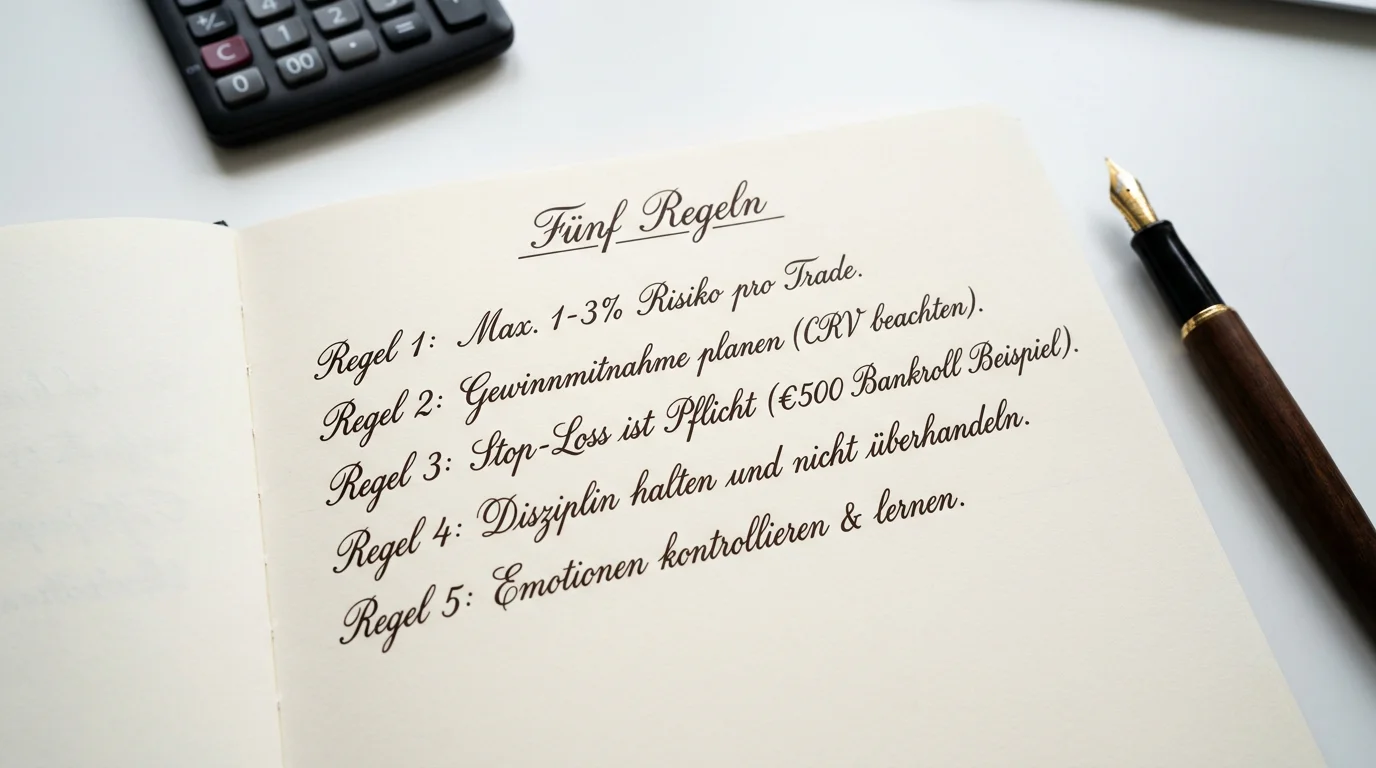 +/-
4
C
1
2
=
0
00
.
Fünf Regeln
Regel 1: Max. 1-3% Risiko pro Trade.
Regel 2: Gewinnmitnahme planen (CRV beachten).
Regel 3: Stop-Loss ist Pflicht (€500 Bankroll Beispiel).
Regel 4: Disziplin halten und nicht überhandeln.
Regel 5: Emotionen kontrollieren & lernen.